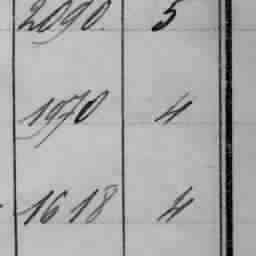 2090. 5
1970 4
1618 4